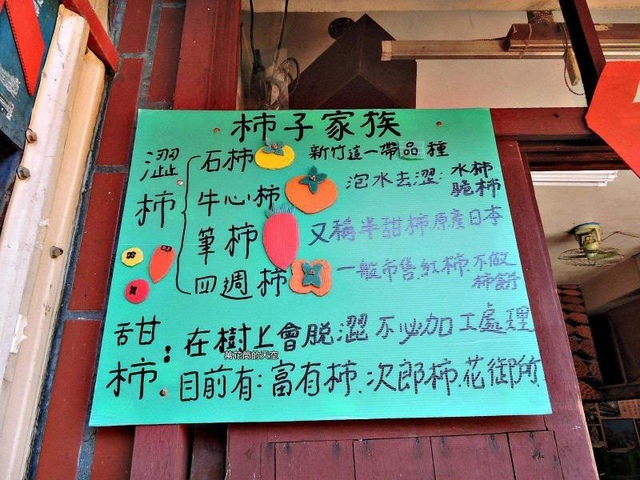 柿子家族
澀柿
石柿 新竹這一帶品種
牛心柿 泡水去澀: 水柿 脆柿
筆柿 又稱半甜柿原產日本
四週柿 一般市售紅柿.不做柿餅
甜柿: 在樹上會脫澀不必加工處理
目前有: 富有柿、次郎柿.花御所